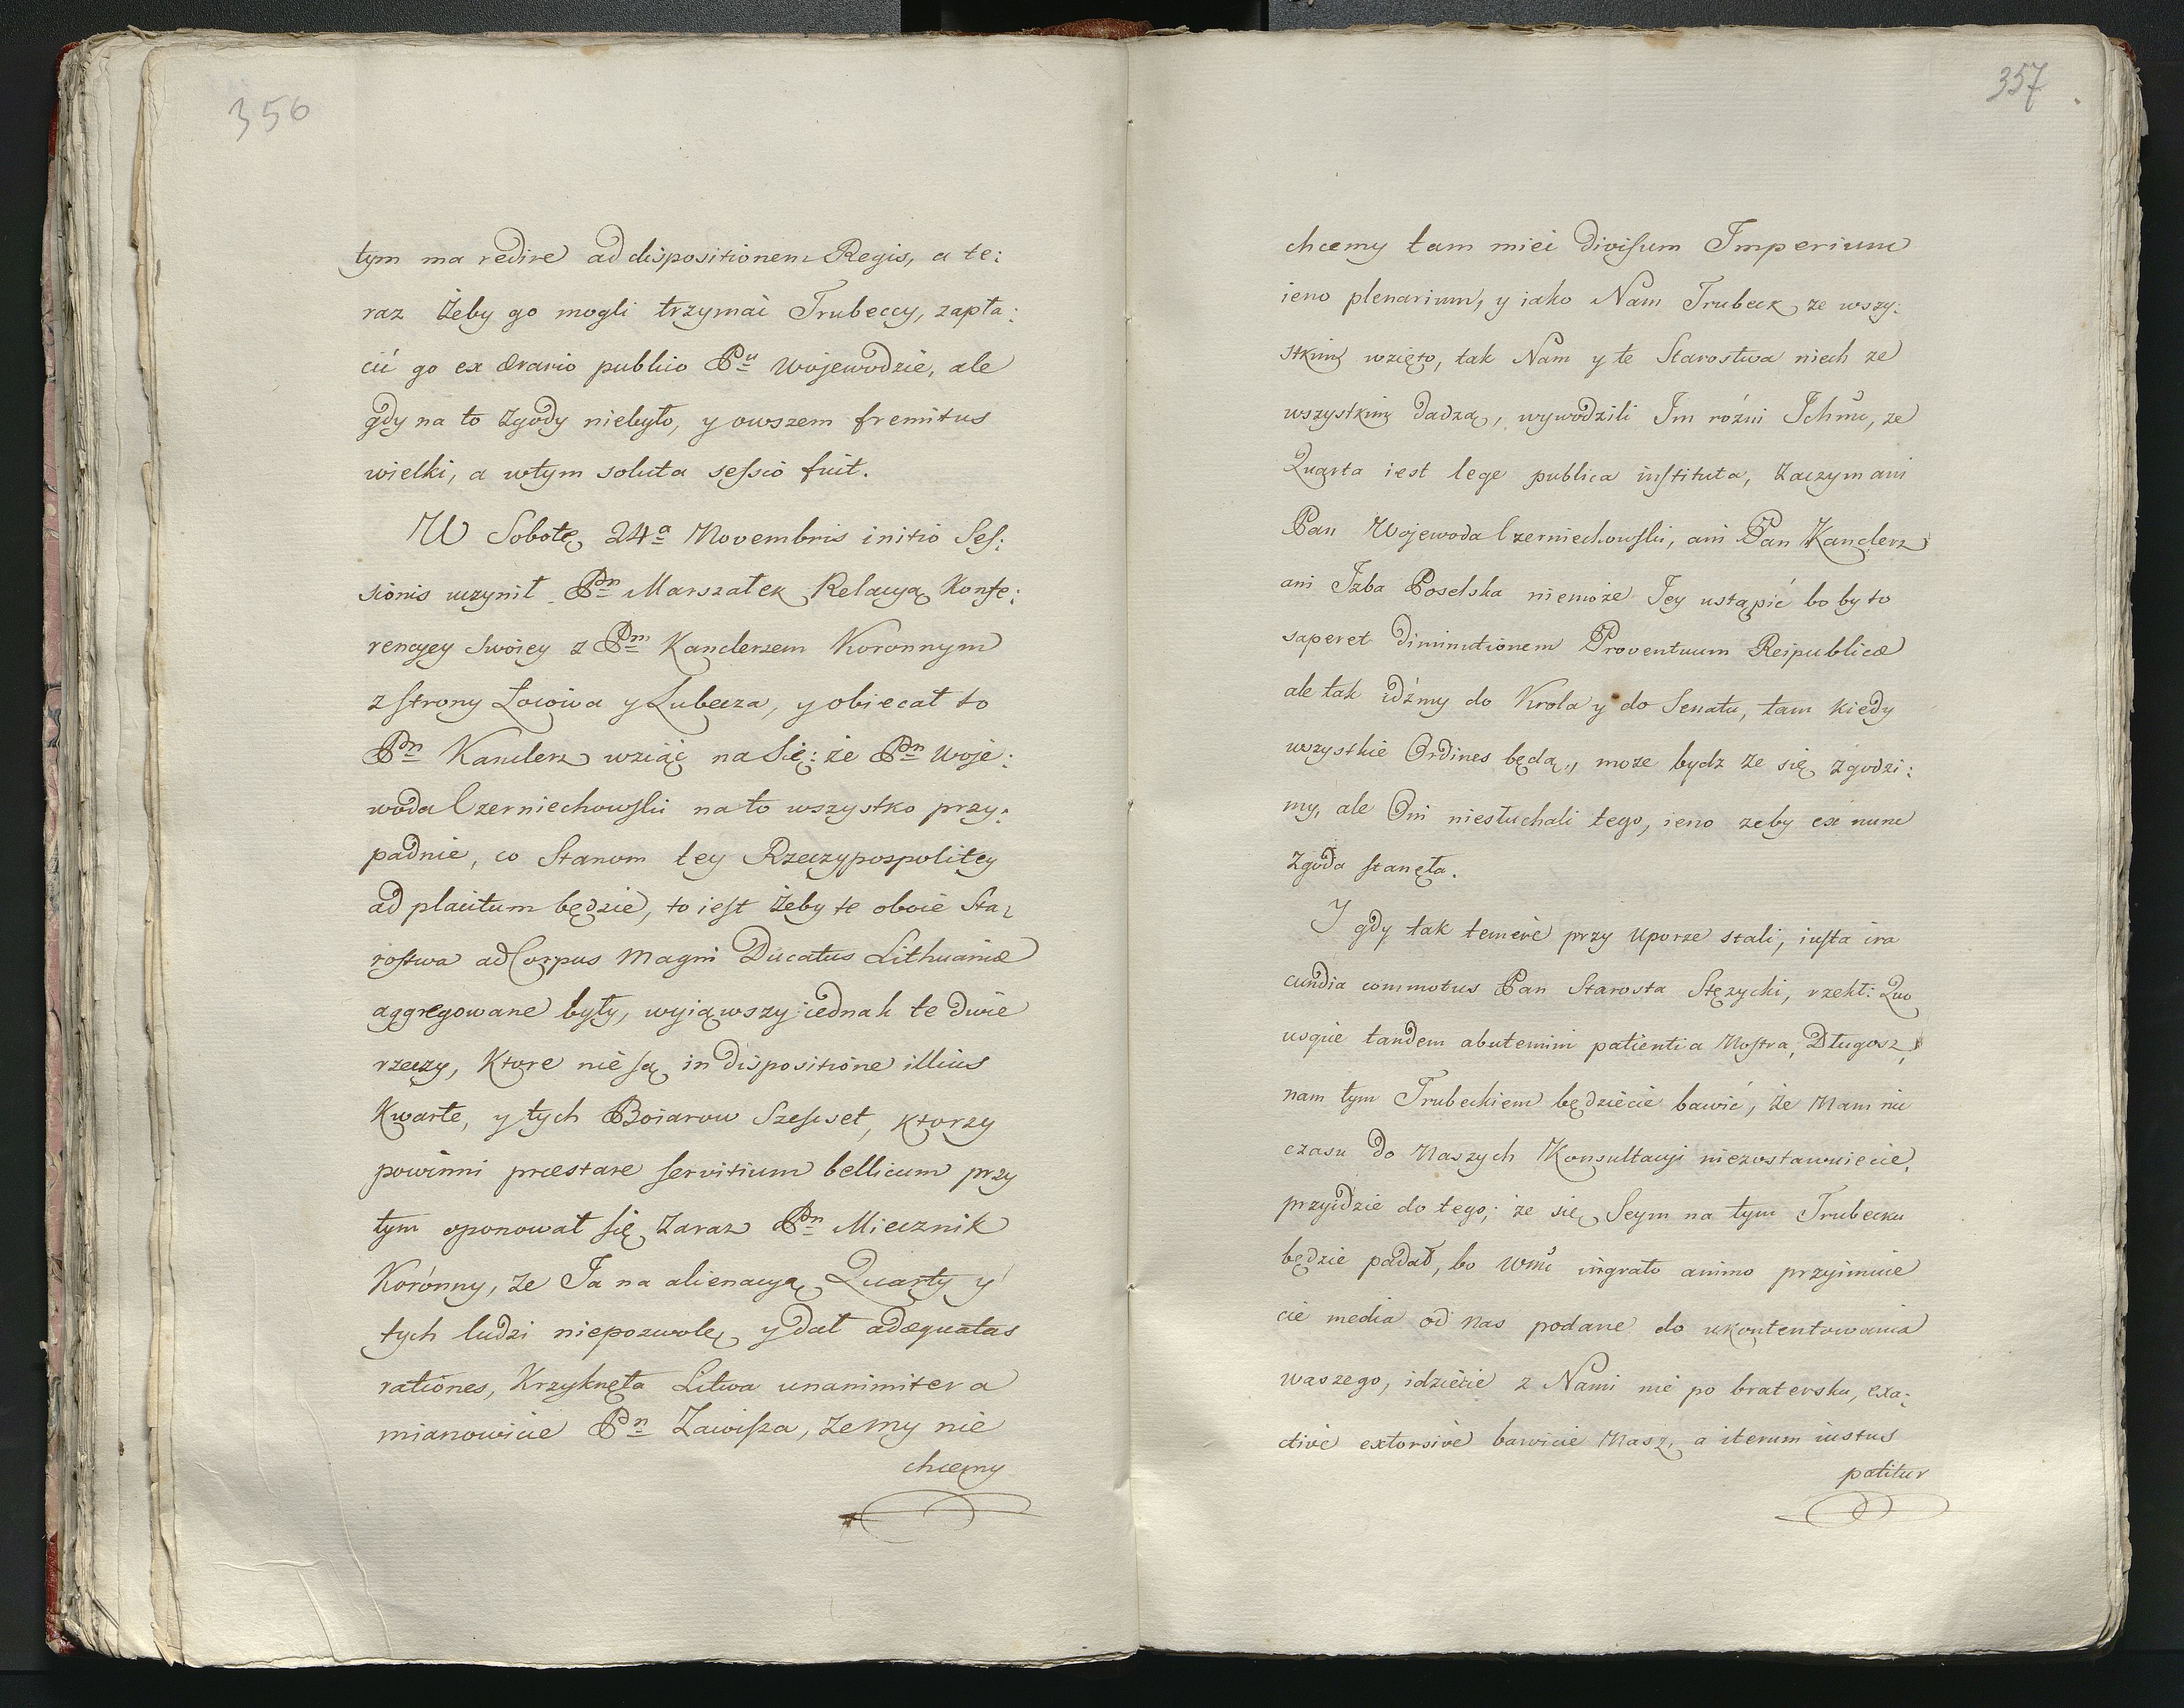 356
tym ma redire ad dispositionem Regis, a te:
raz żeby go mogli trzymać Trubeccy, zapła:
cić go ex ærario publico Pu Wojewodzie, ale
gdy na to zgody niebyło, y owszem fremitus
wielki, a wtym soluta sessio fuit.
W Sobotę 24a Novembris initio Ses:
sionis uczynił Pn Marszałek Relacyą Konfe:
rencyey swoiey z Pm Kanclerzem Koronnym
z strony Łoiowa y Lubecza, y obiecał to
Pn Kanclerz wziąć na Się: że Pn Woje:
woda Czerniechowski na to wszystko przy:
padnie, co Stanom tey Rzeczypospolitey
ad placitum będzie, to iest żeby te oboie Sta:
rostwa ad Corpus Magni Ducatus Lithuaniæ
aggregowane były, wyiąwszy iednak te dwie
rzeczy, Ktore nie są in dispositione illius
Kwartę, y tych Boiarow Szescset, ktorzy
powinni præstare servitium bellicum przy
tym oponował się zaraz Pn Miecznik
Koronny, że Ja na alienacyą Quarty y
tych ludzi niepozwolę, y dał adæquatas
rationes, Krzyknęła Litwa unanimiter a
mianowicie Pn Zawisza, że my nie
chcemy
357
chcemy tam mieć divisum Imperium
ieno plenarium, y iako Nam Trubeck ze wszy:
stkim wzięto, tak Nam y te Starostwa niech ze
wszystkim dadzą, wywodzili Im różni Ichmć, że
Quarta iest lege publica instituta, zaczym ani
Pan Wojewoda Czerniechowski, ani Pan Kanclerz
ani Izba Poselska niemoże Jey ustąpić bo by to
saperet diminutionem Proventuum Reipublicæ
ale tak idźmy do Krola y do Senatu, tam kiedy
wszystkie Ordines będą, może bydz że się zgodzi:
my, ale Oni niesłuchali tego, ieno żeby ex nunc
Zgoda stanęła.
I gdy tak temere przy Uporze stali, iusta ira
cundia commotus Pan Starosta Stężycki, rzekł: Quo
usque tandem abutemini patientia Nostra, Długosz,
nam tym Trubeckiem będziecie bawić, że Nam nic
czasu do Naszych Konsultacyi niezostawuiecie,
przyidzie do tego; że się Seym na tym Trubecku
będzie padał, bo Wmć ingrato animo przyimuie
cie media od nas podane do ukontentowania
waszego, idziecie z Nami nie po bratersku, exa:
ctivè extorsivè bawicie Nasz, a iterum iustus
patitur